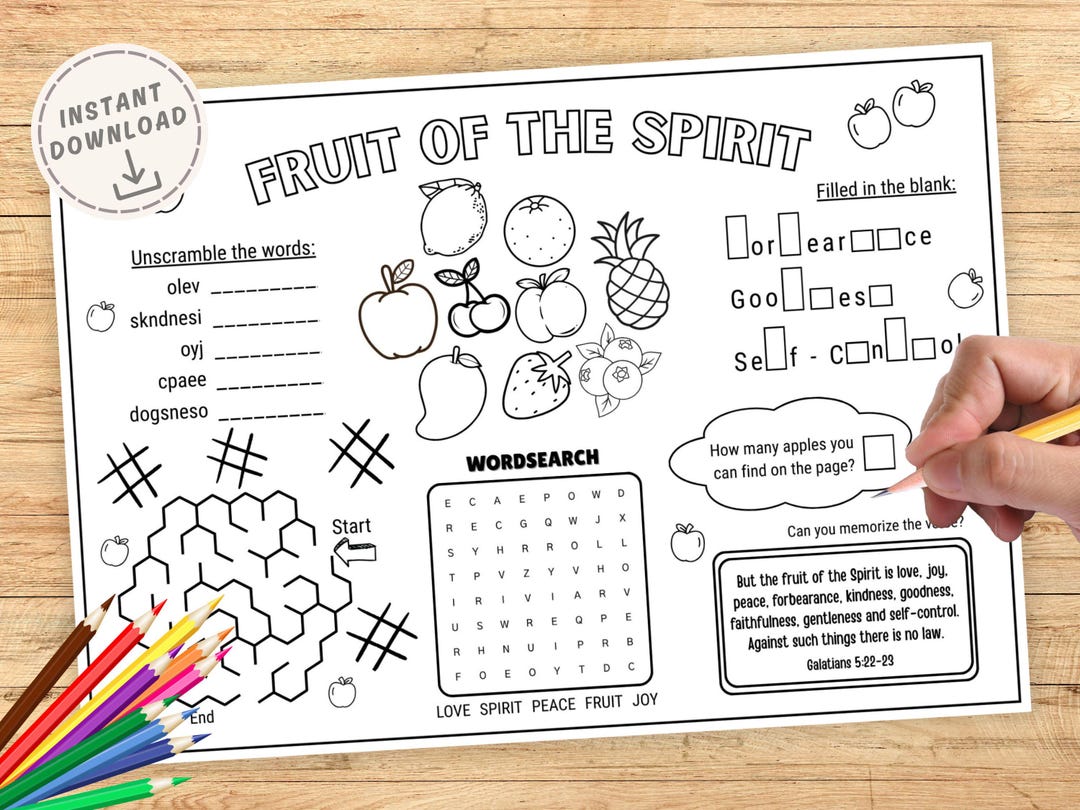 INSTANT
DOWNLOAD
FRUIT OF THE SPIRIT
Unscramble the words:
olev
skndnesi
oyj
cpaee
dogsneso
Filled in the blank:
□or□ear□□ce
Goo□□es□
Se□f - C□n□□ol
How many apples you
can find on the page?
Start
End
WORDSEARCH
E C A E P O W D
R E C G Q W J X
S Y H R R O L L
T P V Z Y V H O
I R I V I A R V
U S W R E Q P E
R H N U I P R B
F O E O Y T D C
LOVE SPIRIT PEACE FRUIT JOY
Can you memorize the verse?
But the fruit of the Spirit is love, joy,
peace, forbearance, kindness, goodness,
faithfulness, gentleness and self-control.
Against such things there is no law.
Galatians 5:22-23